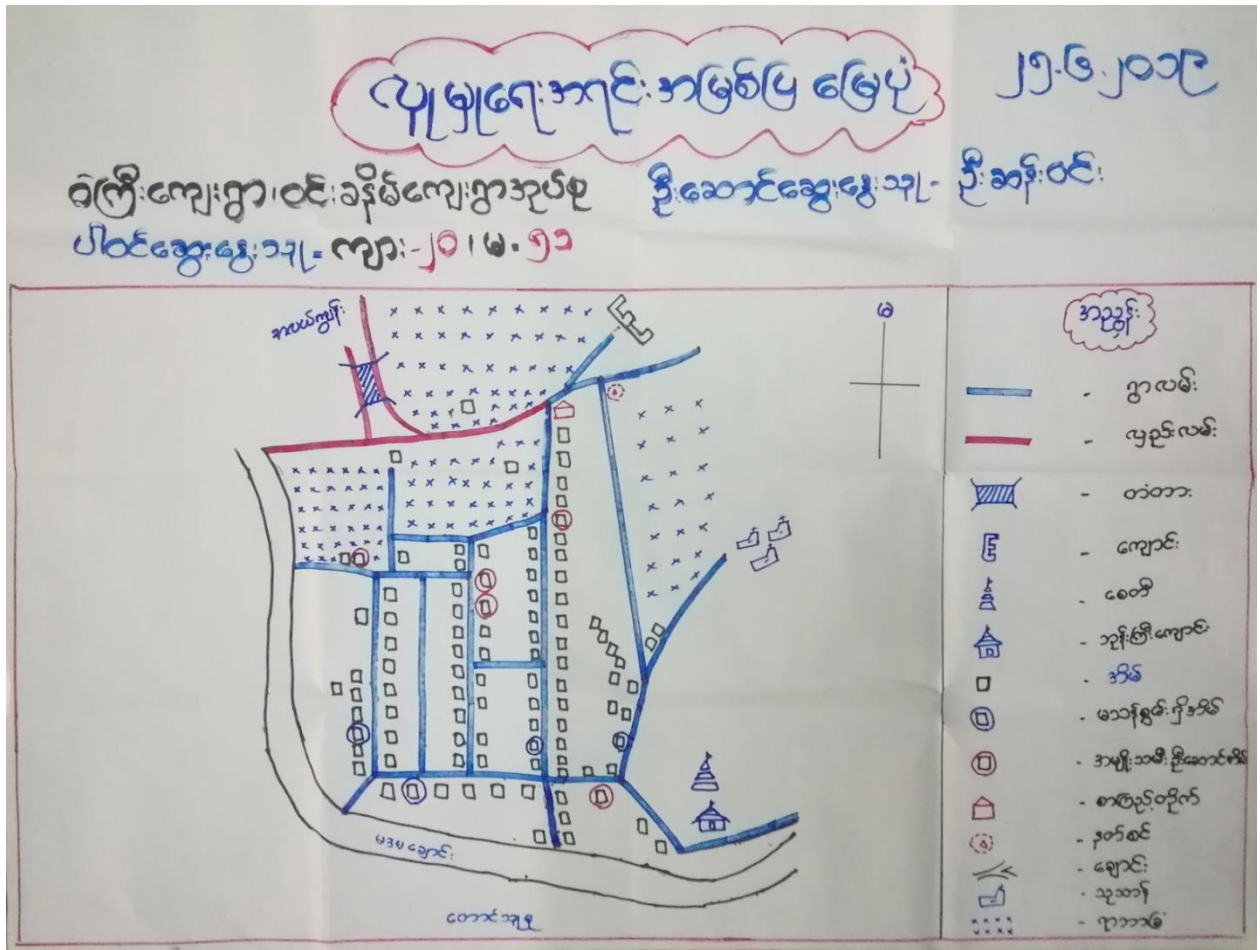 လူမှုရေးအရင်းအမြစ်ပြ မြေပုံ
၂၅.၆.၂၀၁၉
ခံကြီးကျေးရွာ၊ဝင်းခနိမ်ကျေးရွာအုပ်စု
ဦးဆောင်ဆွေးနွေးသူ- ဦးဆန်းဝင်း
ပါဝင်ဆွေးနွေးသူ= ကျား-၂၀၊မ-၅၁
အလယ်ကျွန်း
မ
အညွှန်း
- ရွာလမ်း
- လှည်းလမ်း
- တံတား
- ကျောင်း
- စေတီ
- ဘုန်းကြီးကျောင်း
- အိမ်
- မသန်စွမ်းရှိအိမ်
- အမျိုးသမီးဦးဆောင်အိမ်
- စာကြည့်တိုက်
- နတ်စင်
- ချောင်း
- သုသာန်
- ရာဘာခြံ
မဒမချောင်း
တောင်သူစု